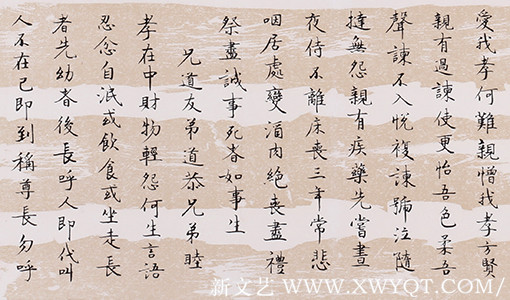 愛我孝何難親憎我孝方賢
親有過諫使更怡吾色柔吾
聲諫不入悅複諫號泣隨
撻無怨親有疾藥先嘗晝
夜侍不離床喪三年常悲
咽居處變酒肉絕喪盡禮
祭盡誠事死者如事生
兄道友弟道恭兄弟睦
孝在中財物輕怨何生言語
忍忿自泯或飲食或坐走長
者先幼者後長呼人即代叫
人不在己即到稱尊長勿呼
新文艺 WWW.XWYQT.COM/